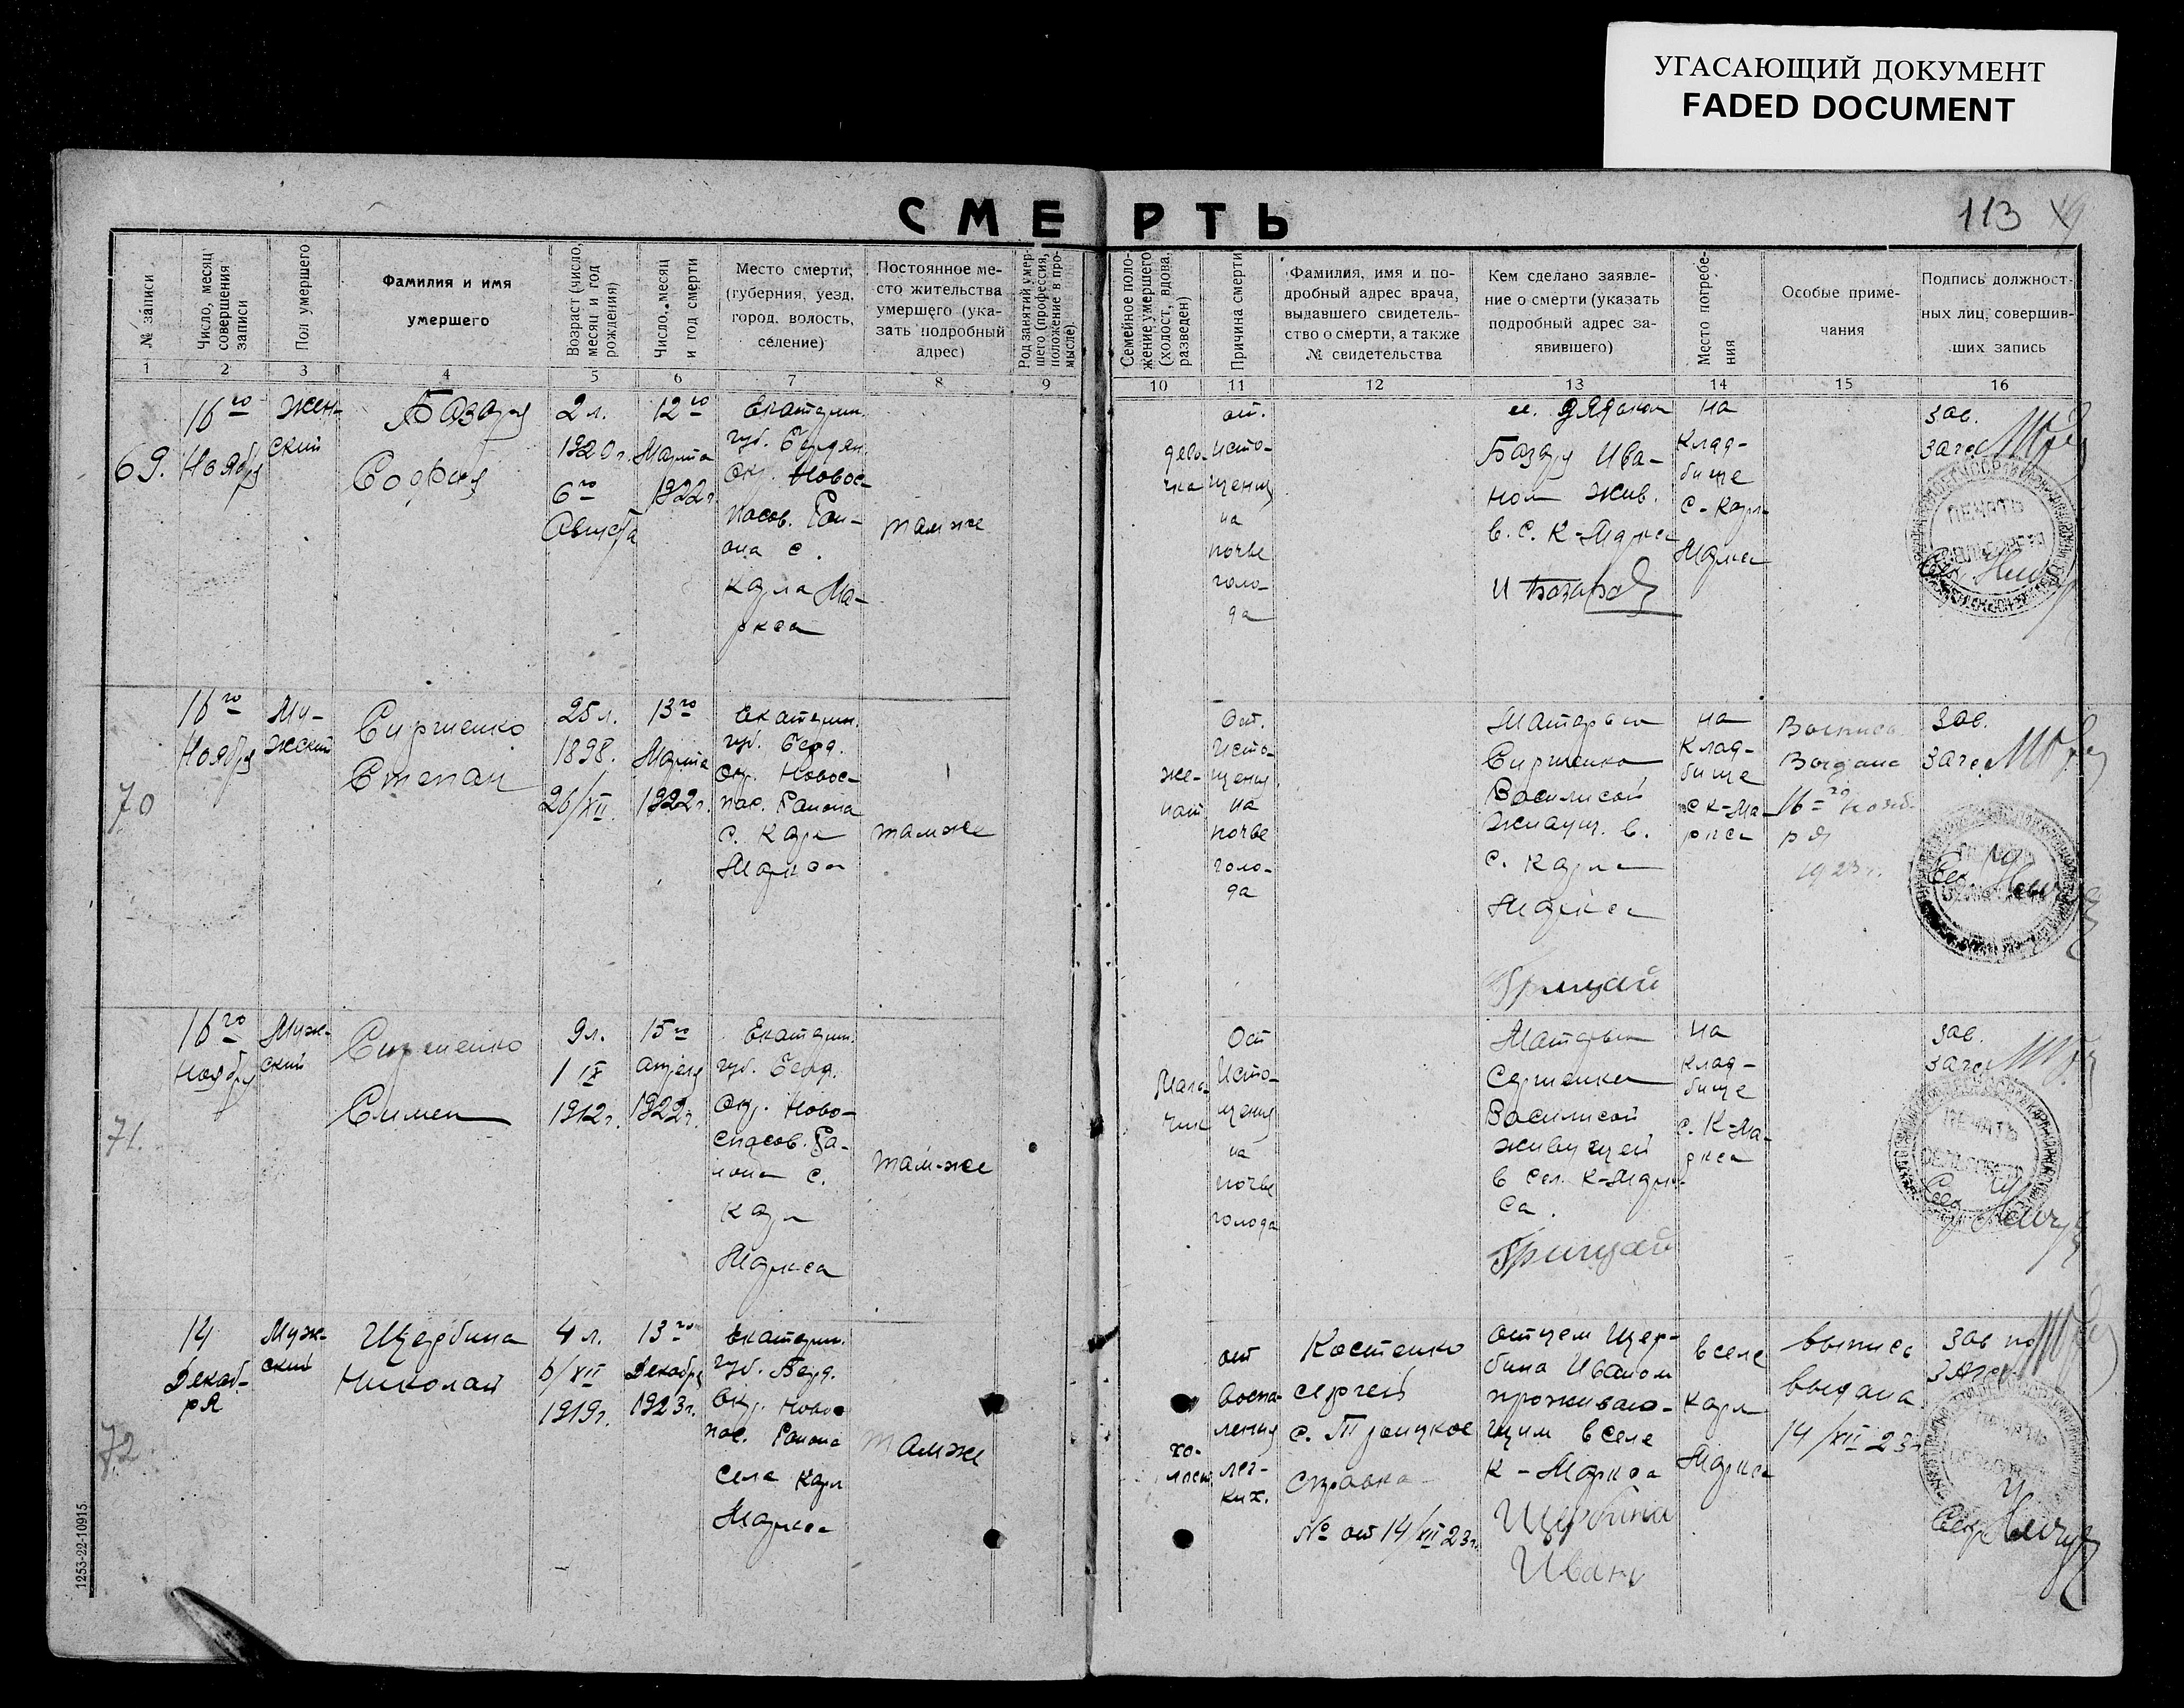 УГАСАЮЩИЙ ДОКУМЕНТ
FADED DOCUMENT
СМЕРТЬ
113
№ записи
Число, месяц
совершения
записи
Пол умершего
Фамилия и имя
умершего
Возраст (число,
месяц и год
рождения)
Число, месяц
и год смерти
Место смерти,
(губерния, уезд,
город, волость,
селение)
Постоянное ме-
сто жительства
умершего (ука-
зать подробный
адрес)
Род занятий умер-
шего (профессия,
положение в про-
мысле).
Семейное поло-
жение умершего
(холост, вдова,
разведен)
Причина смерти
Фамилия, имя и по-
дробный адрес врача,
выдавшего свидетель-
ство о смерти, а также
№ свидетельства
Кем сделано заявле-
ние о смерти (указать
подробный адрес за-
явившего)
Место погребе-
ния
Особые приме-
чания
Подпись должност-
ных лиц, совершив-
ших запись
1 2 3 4 5 6 7 8 9 10 11 12 13 14 15 16
69.
16го
Ноября
Жен-
ский
Базар
София
2 л.
1920 г.
6го
Августа
12го
Марта
1922 г.
Екатерин.
губ. Бердян.
Окр. Новос-
пасов. Рай-
она с.
Карла Ма-
ркса
там же
дево-
чка
от.
исто-
щения
на
почве
голо-
да
дядькой
Базар Ива-
ном жив.
в. с. К-Маркса
И Базар
на
клад-
бище
с. Карл-
Маркса
зав.
загс
ПЕЧАТЬ
70
16го
Ноября
Му-
жский
Сирченко
Степан
25 л.
1898.
26/XII
13го
Марта
1922 г.
Екатерин.
губ. Берд.
Окр. Новос-
пас. Района
с. Карл
Маркса
там же
же-
нат
От.
Исто-
щения
на
почве
голо-
да
Матерью
Василисой
живущ. в.
с. Карла
Маркса
Грицай
на
клад-
бище
с К-Ма-
ркса
Выпись
Выдана
16го нояб-
ря
1923 г.
Зав.
загс
71.
16го
Ноября
Муж-
ский
Симен
9 л.
1 IX
1912 г.
15го
апреля
1922 г.
Екатерин.
губ. Берд.
Окр. Ново-
спасов. Ра-
йона с.
Карл
Маркса
там-же
Маль-
чик
От
Исто-
щения
на
почве
голода
Матерью
Василисой
живущей
в сел. К-Марк-
са.
Грицай
на
клад-
бище
с. К-Ма-
ркса
зав.
загс
ПЕЧАТЬ
72
14
Декаб-
ря
Муж-
ский
Щербина
Николай
4 л.
6/XII
1919 г.
13го
Декабря
1923 г.
Екатерин.
губ. Берд.
Окр. Новос
пас. Района
села Карл
Маркса
там же
хо-
лост
от
воспа-
ления
лег-
ких.
Костенко
Сергей
с. Троицкое
Справка
№ от 14/XII 23 г.
отцем Щер-
бина Иваном
проживаю-
щим в селе
К-Маркса
Щербина
Иван
в селе
Карл
Маркса
выпись
выдана
14/XII 23 г.
Зав по
ЗАГС
1253-22-10915.